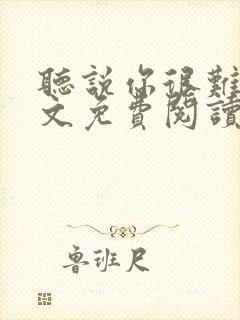 聽說你很難
文免費閱讀
魯班尺